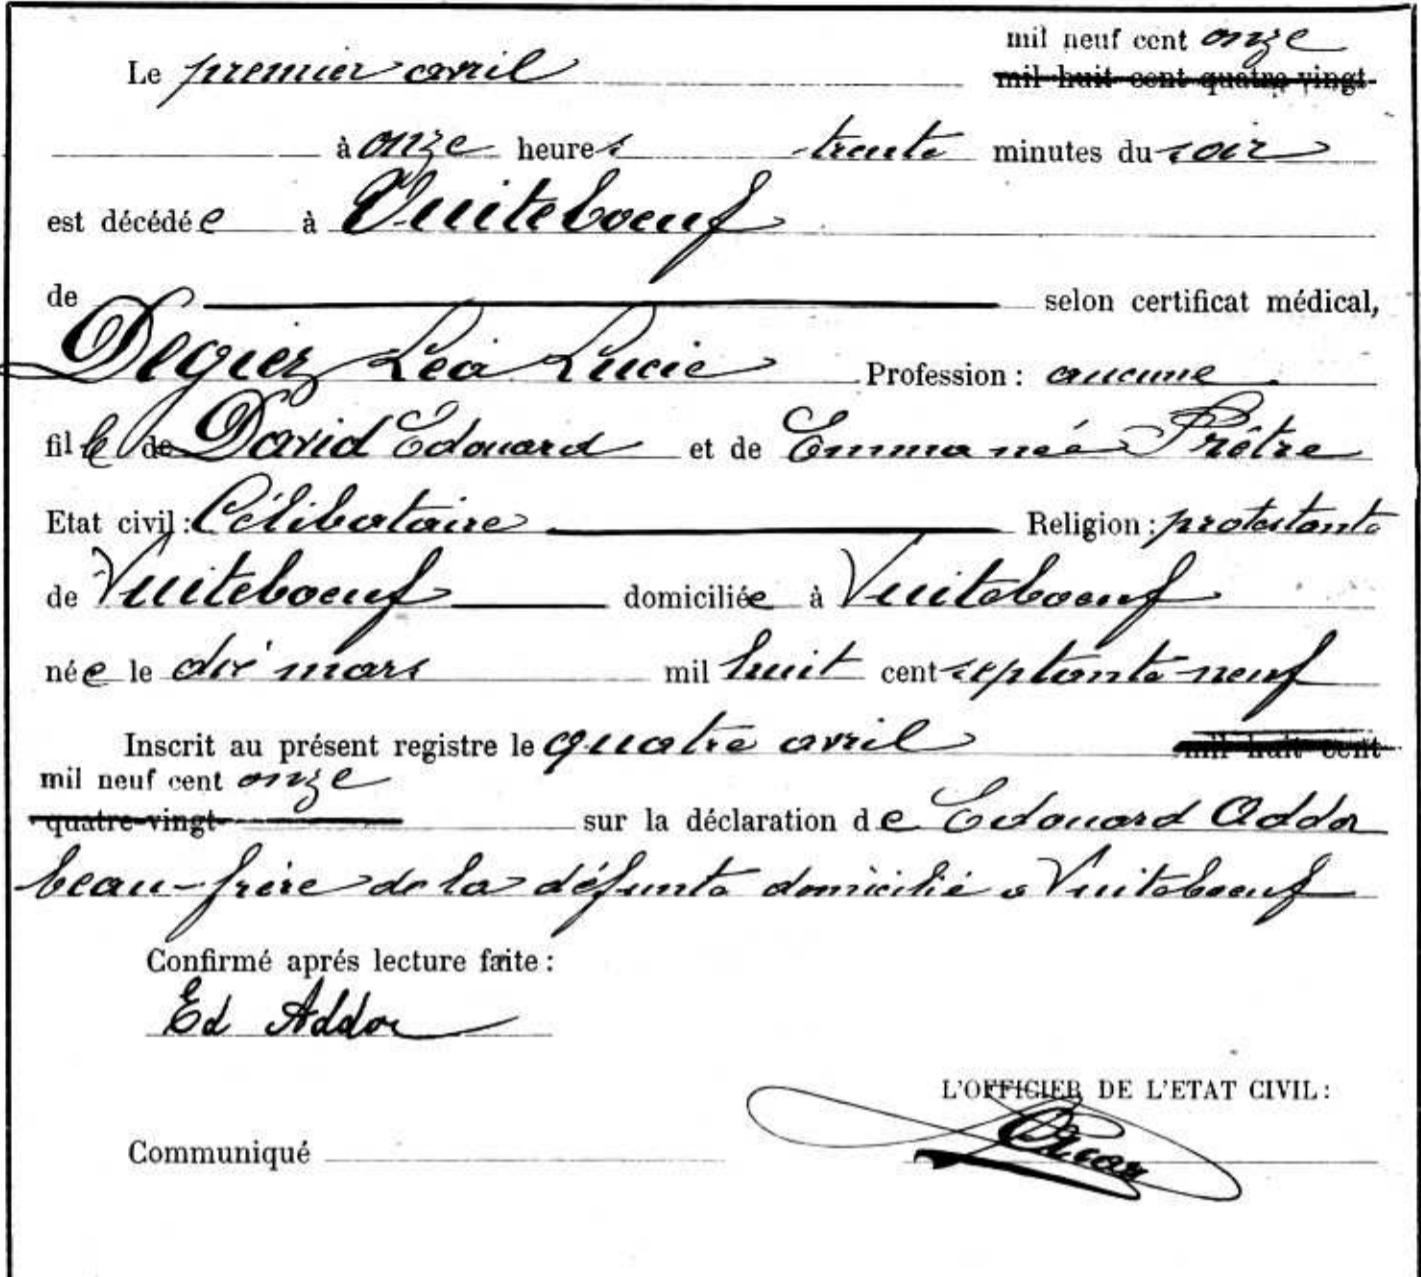 mil neuf cent onze
Le premier avril mil huit cent quatre vingt-
à onze heures trente minutes du soir
est décédée à Vuiteboeuf
de selon certificat médical,
Deguez Léa Lucie Profession : aucune
fille de David Edouard et de Emma née Prêtre
Etat civil : Célibataire Religion : protestante
de Vuiteboeuf domiciliée à Vuiteboeuf
née le dix mars mil huit cent septante neuf
Inscrit au présent registre le quatre avril mil huit cent
mil neuf cent onze
quatre-vingt- sur la déclaration de Edouard Addor
beau-frère de la défunte domicilié à Vuiteboeuf
Confirmé aprés lecture faite :
Ed Addor
L'OFFICIER DE L'ETAT CIVIL :
Communiqué